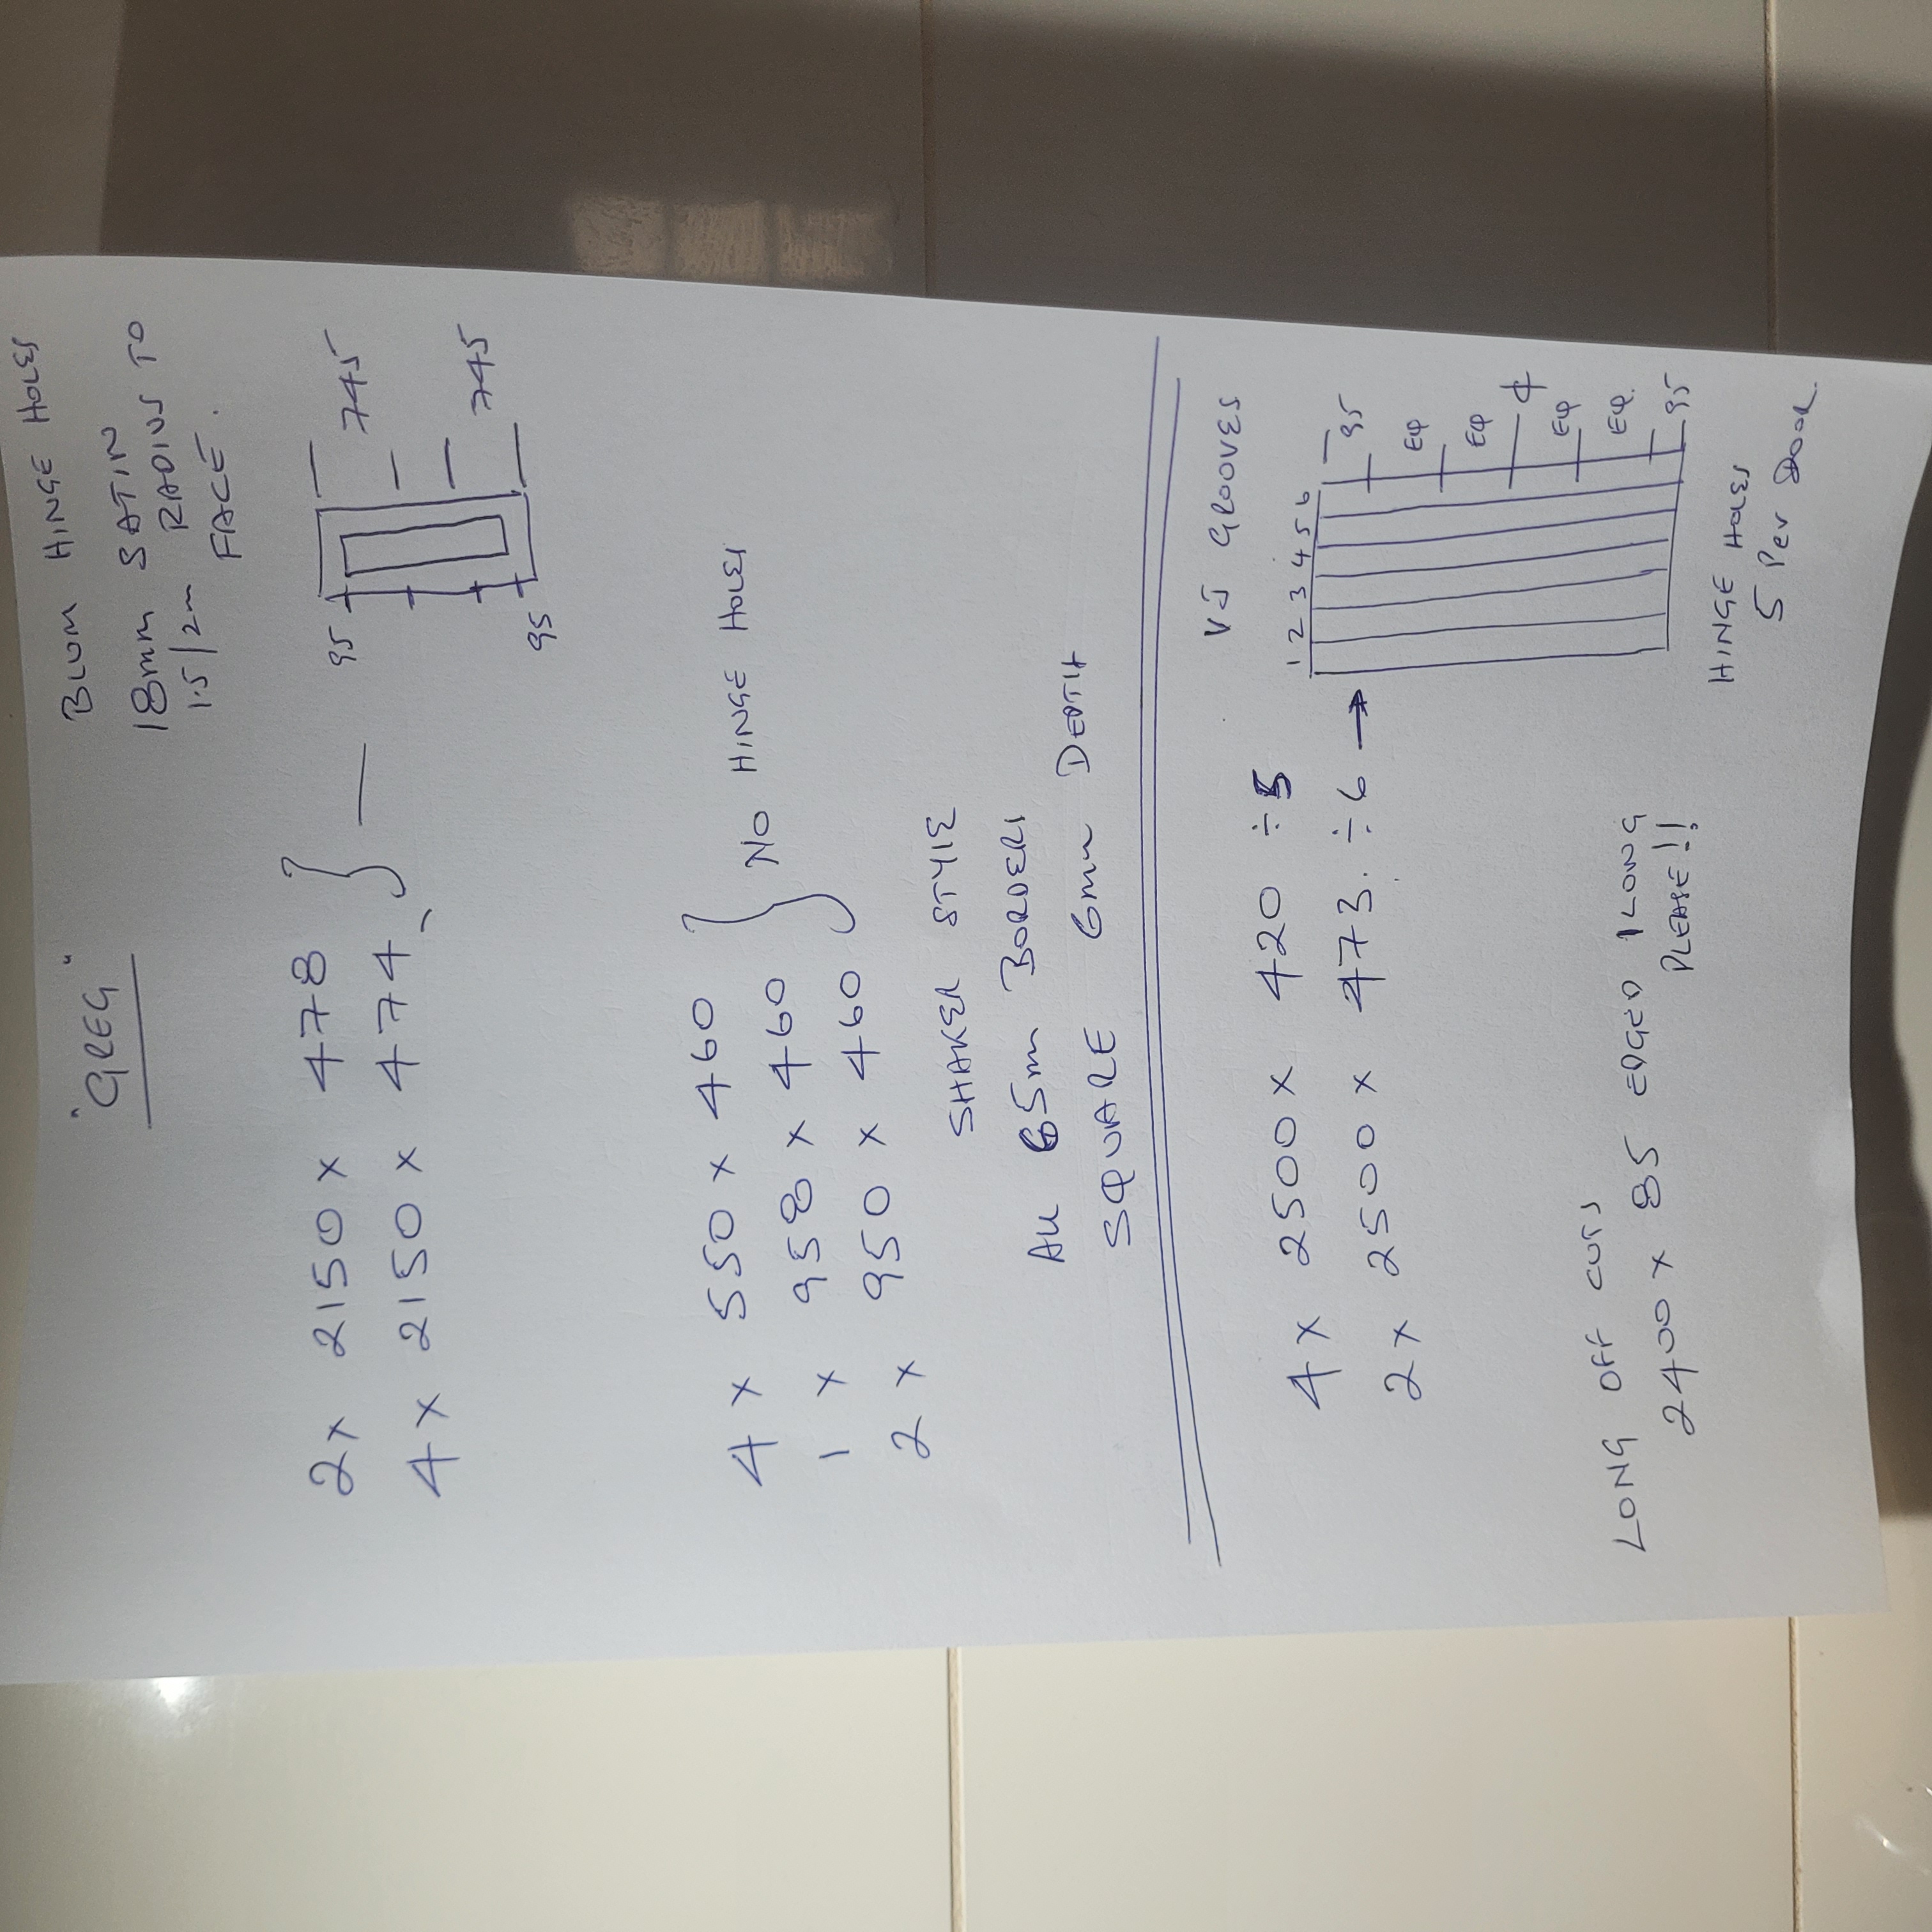 "GREG"
BLUM HINGE HOLES
18mm SATIN
1.5/2m RADIUS TO
FACE.
2x 2150 x 478
4x 2150 x 474
95
745
745
95
4 x 550 x 460
1 x 958 x 460
2 x 950 x 460
NO HINGE HOLES
SHAKER STYLE
All 65m BORDERS
SQUARE 6mm DEPTH
VJ GROOVES
4x 2500 x 420 ÷ 5
2x 2500 x 473. ÷ 6 →
1 2 3 4 5 6
95
EQ
EQ
EQ
EQ.
95
HINGE HOLES
5 Per Door
LONG OFF CUTS
2400 x 85 EDGED 1 LONG
PLEASE!!